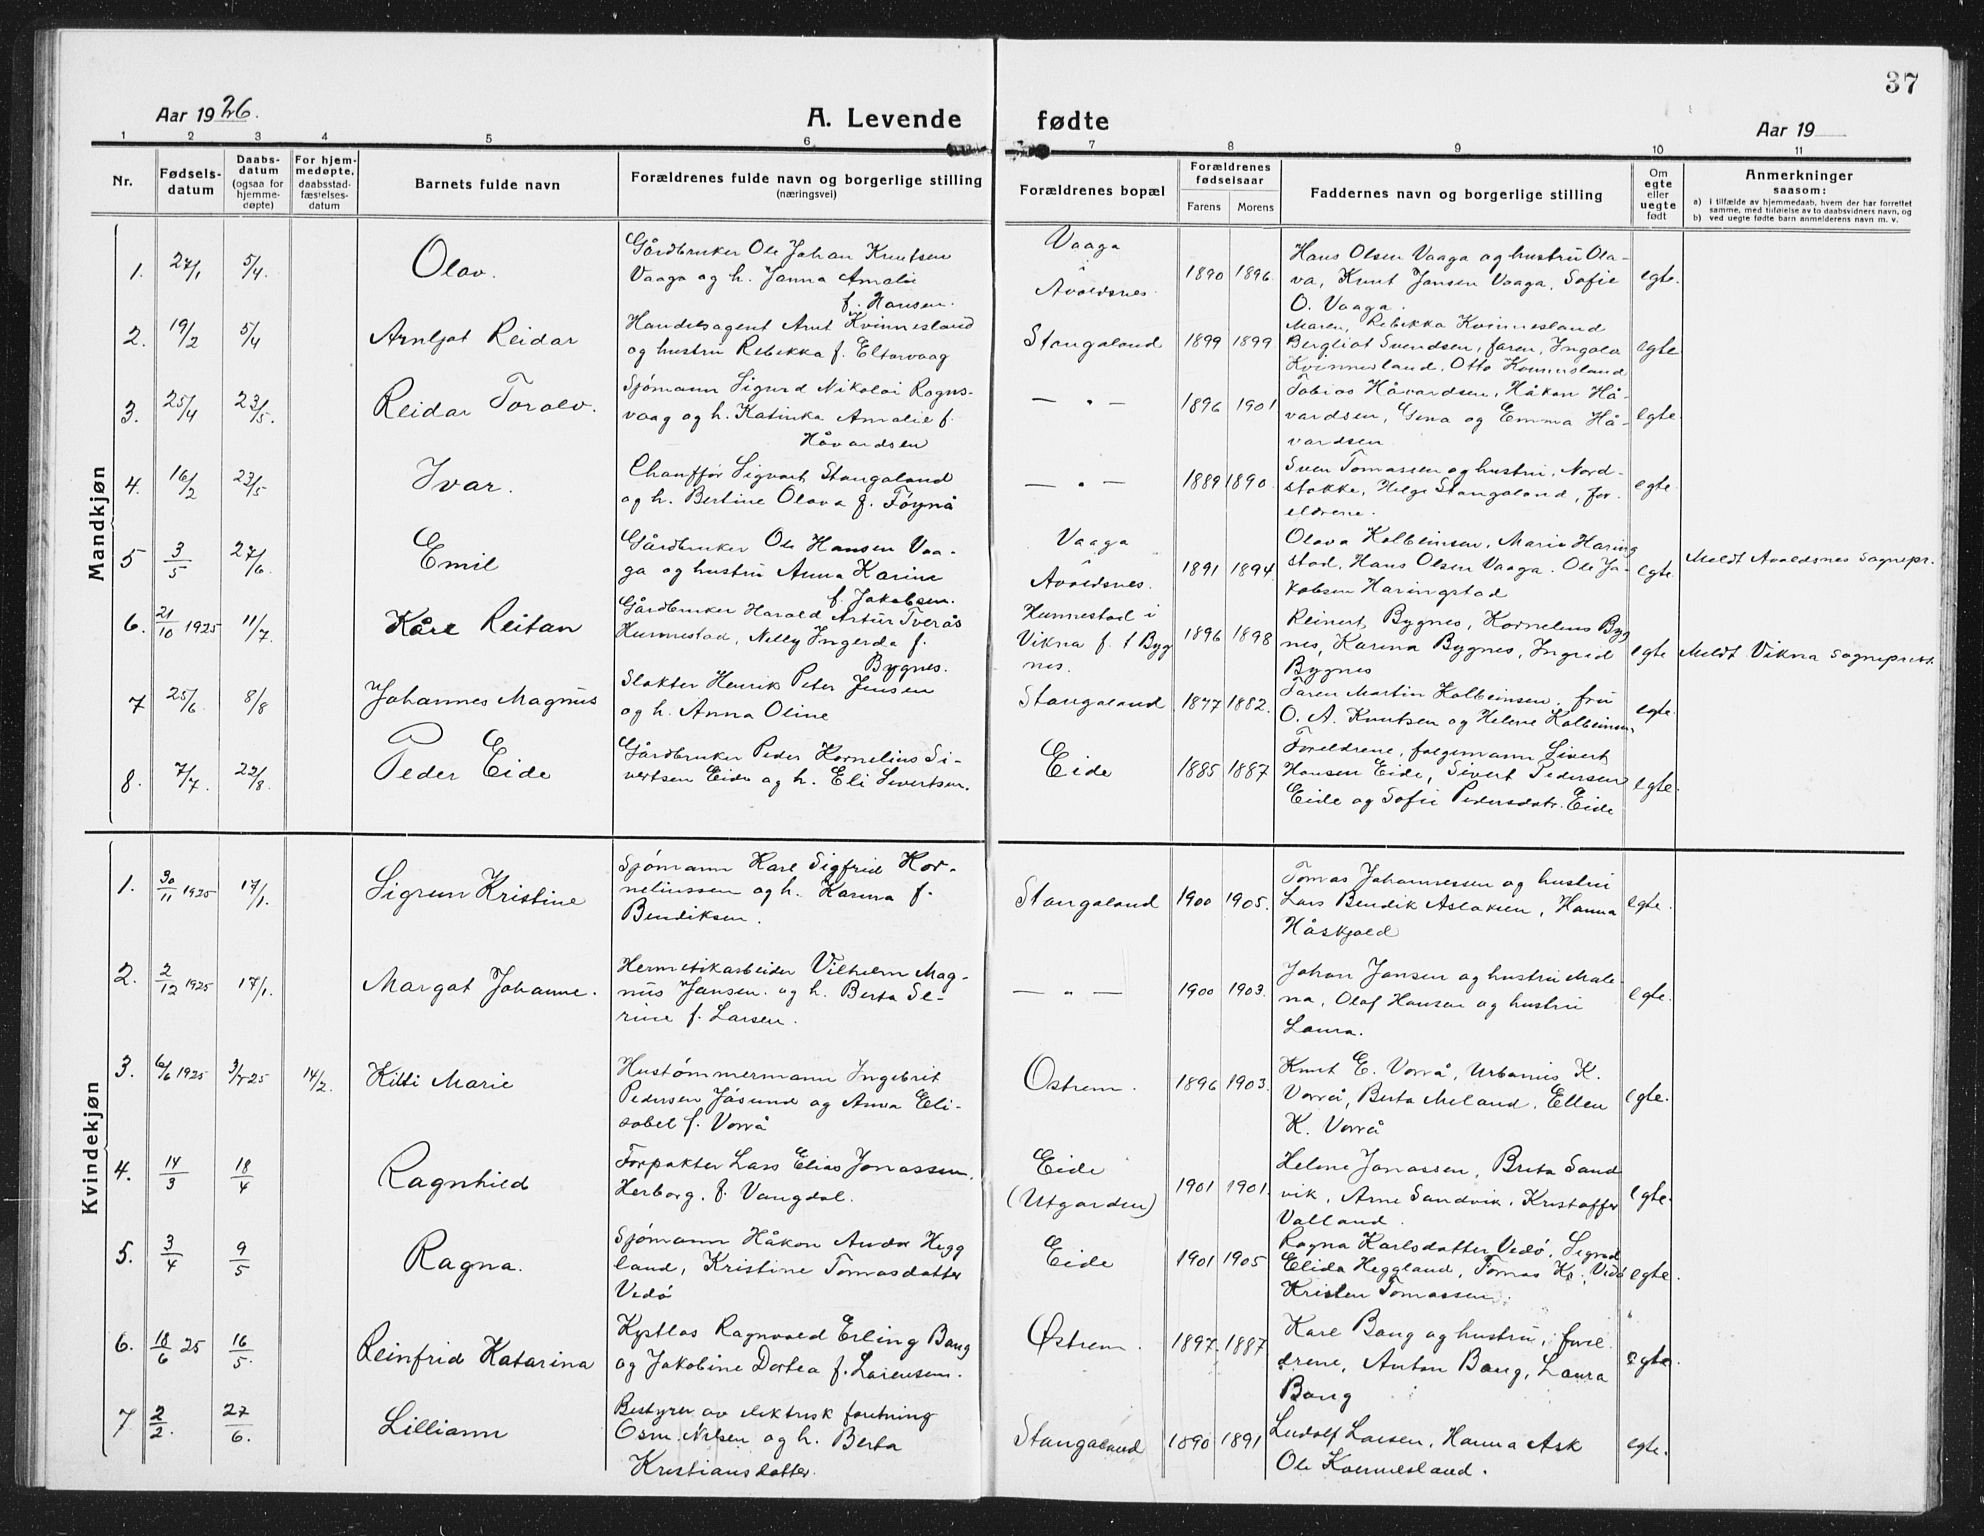 37
Aar 1926.
A. Levende fødte
Aar 19
1 2 3 4 5 6 7 8 9 10 11
Nr.
Fødsels-
datum
Daabs-
datum
(ogsaa for
hjemme-
døpte)
For hjem-
medøpte,
daabsstad-
fæstelses-
datum
Barnets fulde navn
Forældrenes fulde navn og borgerlige stilling
(næringsvei)
Forældrenes bopæl
Forældrenes
fødselsaar
Farens Morens
Faddernes navn og borgerlige stilling
Om
egte
eller
uegte
født
Anmerkninger
saasom:
a) i tilfælde av hjemmedaab, hvem der har forrettet
samme, med tilføielse av to daabsvidners navn, og
b) ved uegte fødte barn anmelderens navn m. v.
Mandkjøn
1. 27/1 5/4. Olav.
Gårdbruker Ole Johan Knutsen
Vaaga og h. Janna Amalie
f. Hansen.
Vaaga
Avaldsnes.
1890 1896.
Hans Olsen Vaaga og hustru Ola-
va, Knut Jansen Vaaga, Sofie
O. Vaaga.
egte.
2. 19/2 5/4 Arnljot Reidar
Handelsagent Arnt Kvinnesland
og hustru Rebekka f. Eltarvaag
Stangaland 1899 1899
Maren, Rebekka Kvinnesland
Bergliot Svendsen, faren, Ingolv
Kvinnesland, Otto Kvinnesland
egte
3. 25/4 23/5. Reidar Toralv.
Sjømann Sigurd Nikolai Ragns-
vaag og h. Katinka Amalie f.
Håvardsen
— " — 1896 1901
Tobias Håvardsen, Håkon Hå-
vardsen, Gina og Emma Hå-
vardsen
egte.
4. 16/2 23/5 Ivar.
Chauffør Sigvart Stangaland
og h. Bertine Olava f. Føynå
— " — 1889 1890.
Sven Tomassen og hustru, Nord-
stokke, Helge Stangaland, for-
eldrene.
egte.
5 3/5 27/6. Emil
Gårdbruker Ole Hansen Vaa-
ga og hustru Anna Karine
f. Jakobsen.
Vaaga
Avaldsnes.
1891 1894
Olava Kolbeinsen, Marie Haring
stad, Hans Olsen Vaaga. Ole Ja-
kobsen Haringstad
egte.
Meldt Avaldsnes sognepr.
6. 21/10 1925 11/7. Kåre Reitan
Gårdbruker Harald Artur Tverås
Hunnestad, Nelly Ingerda f.
Bygnes.
Hunnestad i
Vikna f. t Byg
nes.
1896 1898
Reinert Bygnes, Kornelius Byg
nes, Karina Bygnes, Ingrid
Bygnes
egte
Meldt Vikna sogneprest.
7 25/6 8/8 Johannes Magnus
Slakter Henrik Peter Jensen
og h. Anna Oline
Stangaland 1877 1882.
Faren Martin Kolbeinsen, fru
O. A. Knutsen og Helene Kolbeinsen
egte.
8. 7/7. 22/8. Peder Eide
Gårdbruker Peder Kornelius Si-
vertsen Eide og h. Eli Sivertsen.
Eide 1885 1887
Foreldrene, følgemann Sivert
Hansen Eide, Sivert Pedersen
Eide og Sofie Pedersdatr. Eide
egte.
Kvindekjøn
1. 30/11 1925 17/1. Sigrun Kristine
Sjømann Karl Sigfrid Kor-
neliussen og h. Karina f.
Bendiksen.
Stangaland 1900 1905.
Tomas Johannessen og hustru
Lars Bendik Aslaksen, Hanna
Håskjold
egte.
2. 2/12 1925 17/1. Margot Johanne.
Hermetikarbeider Vilhelm Mag-
nus Jansen. og h. Berta Se-
rine f. Larsen.
— " — 1900 1903.
Johan Jansen og hustru Male
na, Olaf Hansen og hustru
Laura.
egte.
3. 6/6 1925 3/7 25 14/2. Kitti Marie
Hustømmermann Ingebrit
Pedersen Jåsund og Anna Eli-
sabet f. Vorrå
Østrem. 1896 1903.
Knut E. Vorrå, Urbanus K.
Vorrå, Berta Meland. Ellen
K. Vorrå
egte.
4. 14/3 18/4 Ragnhild
Forpakter Lars Elias Jonassen,
Herborg, f. Vangdal.
Eide
(Utgarden)
1901 1901.
Helene Jonassen, Brita Sand
vik, Arne Sandvik, Kristoffer
Valland.
egte.
5. 3/4 9/5 Ragna.
Sjømann Håkon Andor Hegg
land, Kristine Tomasdatter
Vedø
Eide 1901 1905
Ragna Karlsdatter Vedø, Sigurd
Elida Heggland, Tomas Kr. Vedø
Kristen Tomassen.
egte.
6. 18/6 25 16/5. Reinfrid Katarina
Kystlos Ragnvald Erling Bang
og Jakobine Dortea f. Lorensen.
Østrem. 1897 1887
Kare Bang og hustru, forel-
drene, Anton Bang, Laura
Bang
egte.
7 2/2. 27/6. Lilliann
Bestyrer av elektrisk foretning
Osm. Nilsen og h. Berta
Kristiansdatter.
Stangaland 1890 1891
Ludolf Larsen, Hanna Ask
Ole Kvinnesland.
egte.